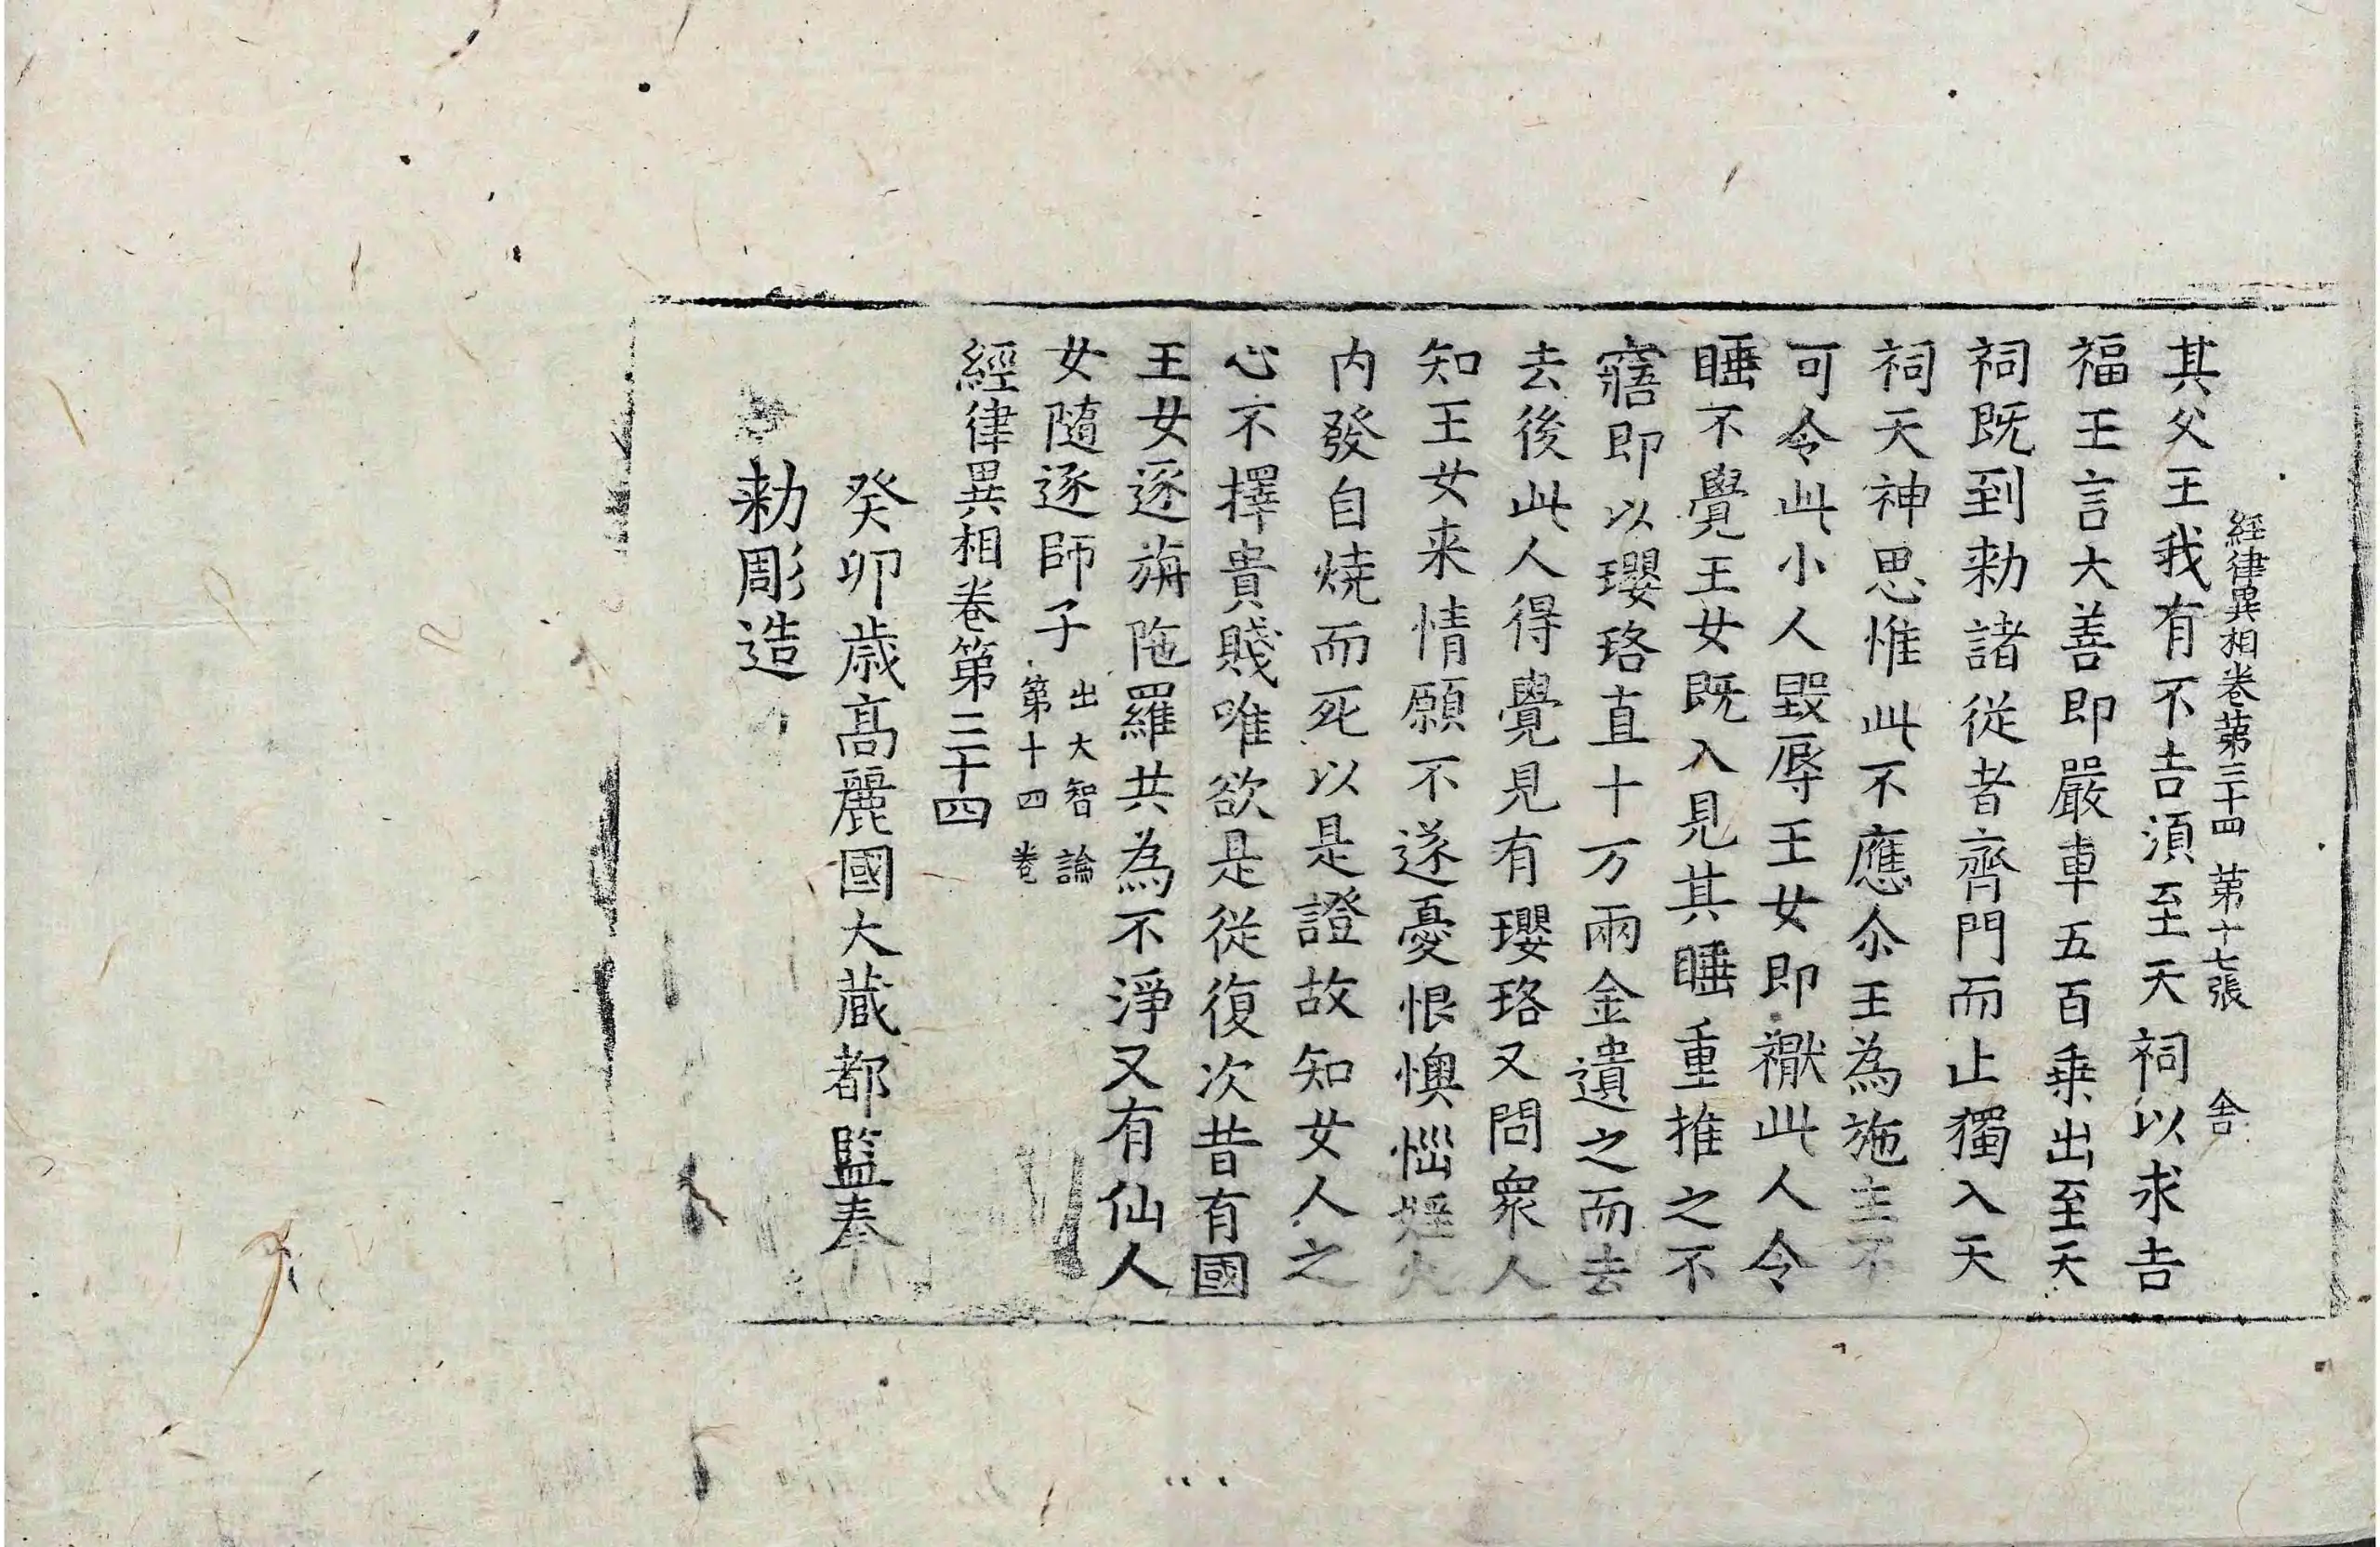 經律異相卷第三十四 第十七張 舍
其父王我有不吉湏至天祠以求吉
福王言大善即嚴車五百乗出至天
祠既到勑諸從者齊門而止獨入天
祠天神思惟此不應尒王為施主不
可令此小人毀辱王女即禳此人令
睡不覺王女既入見其睡重推之不
寤即以瓔珞直十万兩金遺之而去
去後此人得覺見有瓔珞又問衆人
知王女来情願不遂憂恨懊惱婬火
内發自燒而死以是證故知女人之
心不擇貴賤唯欲是從復次昔有國
王女逐旃陁羅共為不淨又有仙人
女隨逐師子 出大智論
第十四卷
經律異相卷第三十四
癸卯歳髙麗國大蔵都監奉
勑彫造